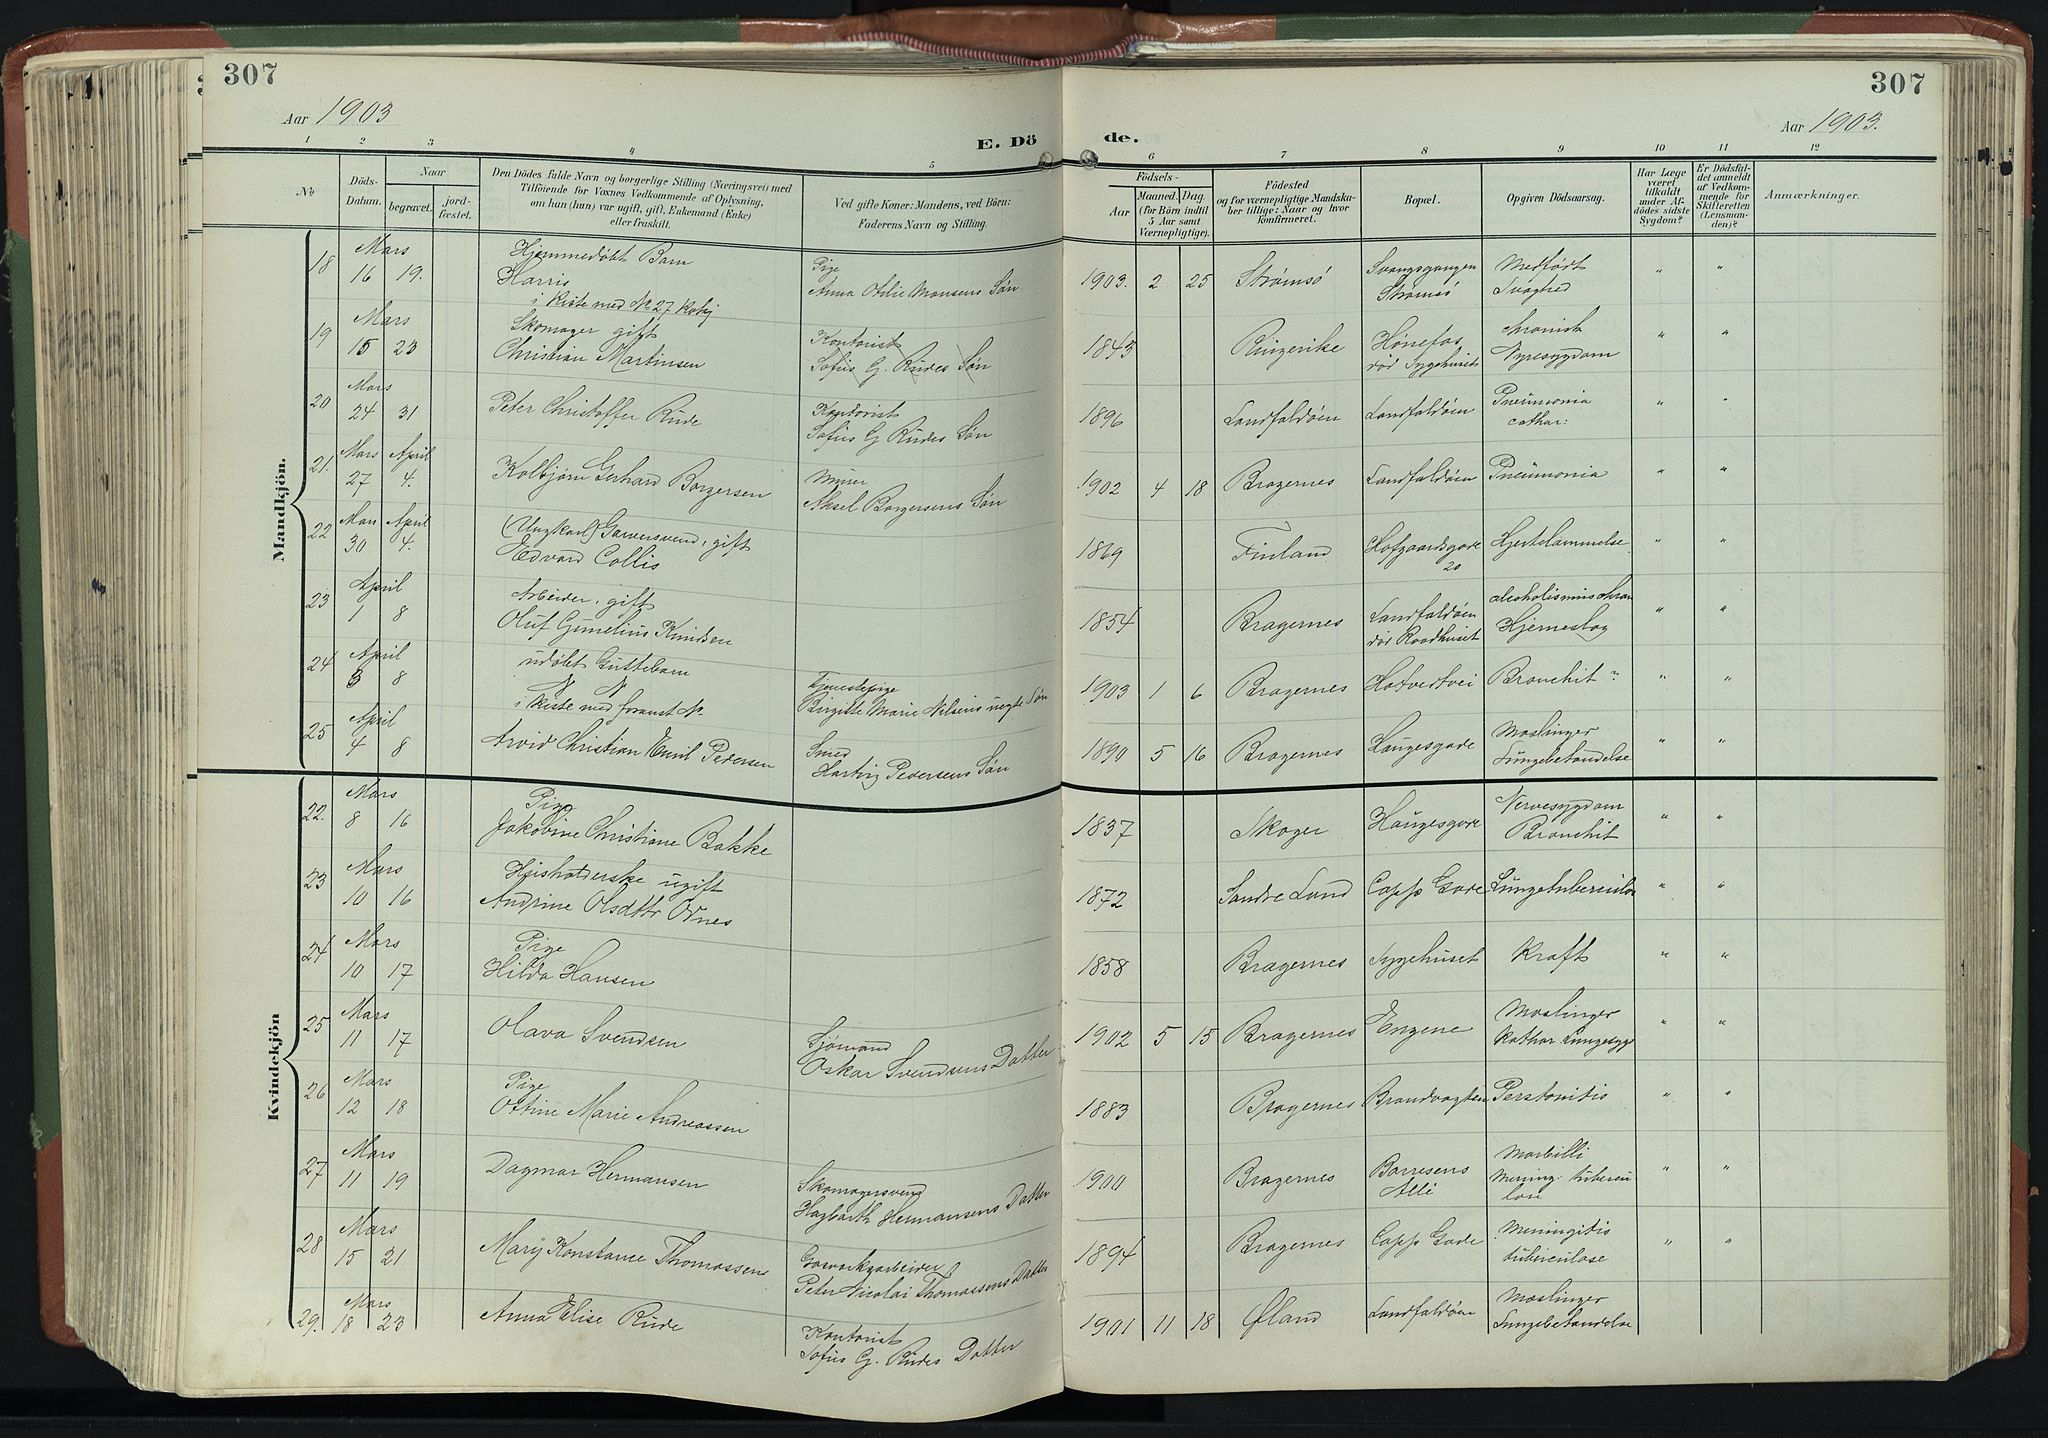 307
307
Aar 1903
Aar 1903.
E. Dö de.
1 2 3 4 5 6 7 8 9 10 11 12
No
Döds-
Datum.
Naar
begravet.
jord-
fæstet.
Den Dödes fulde Navn og borgerlige Stilling (Næringsvei) med
Tilföiende for Voxnes Vedkommende af Oplysning,
om han (hun) var ugift, gift, Enkemand (Enke)
eller fraskilt.
Ved gifte Koner: Mandens, ved Börn:
Faderens Navn og Stilling.
Födsels-
Aar
Maaned. Dag.
(for Börn indtil
5 Aar samt
Værnepligtige).
Födested
og for værnepligtige Mandska-
ber tillige: Naar og hvor
konfirmeret.
Bopæl.
Opgiven Dödsaarsag.
Har Læge
været
tilkaldt
under Af-
dödes sidste
Sygdom?
Er Dödsfal-
det anmeldt
af Vedkom-
mende for
Skifteretten
(Lensman-
den)?
Anmærkninger.
Mandkjön.
18 Mars 16 19. Hjemmedøbt Barn
Harris
i Kiste med No 27 Kvkj
Pige
Anna Otilie Monsens Søn
1903. 2 25 Strømsö Svangsgangen
Strømsö
Medfödt
Svaghed " "
19 Mars 15 23 Skomager gift
Christian Martinsen
Kontorist
Sofus G. Rudes Søn
1843 Ringerike Hønefos
död Sygehuset
chronisk
Nyresygdom " "
20 Mars 24 31 Peter Christoffer Rude
Kontorist
Sofus G Rudes Søn
1896 Landfaldøen Landfaldøen Pneumonia
cathar: " "
21. Mars 27 April 4. Kolbjørn Gerhard Borgersen
Murer
Aksel Borgersens Søn
1902 4 18 Bragernes Landfaldøen Pneumonia " "
22 Mars 30 April 4. (Ungkarl) Garversvend, gift
Edvard Collis
1869 Finland Hofgaardsgade
20
Hjertelammelse " "
23 April 1 8 Arbeider, gift
Oluf Gunelius Knudsen
1854 Bragernes Landfaldøen
död Raadhuset
alcoholismus chron
Hjerneslag " "
24 April 3 8 udöbt Guttebarn
N N
i Kiste med foranst No
Tjenestepige
Birgitte Marie Nilsens uegte Søn
1903 1 6 Bragernes Hotvedtvei Bronchit " "
25 April 4 8 Arvid Christian Emil Pedersen
Smed
Harting Pedersens Søn
1890 5 16 Bragernes Haugesgade Mæslinger
Lungebetændelse " "
Kvindekjön
22. Mars 8 16 Pige
Jakobine Christiane Bakke
1837 Skoger Haugesgade Nervesygdom
Bronchit " "
23 Mars 10 16 Husholderske ugift
Andrine Olsdttr Odnes
1872 Søndre Land Capp. Gade Lungetuberculos " "
24 Mars 10 17 Pige
Hilda Hansen
1858 Bragernes Sygehuset Kræft " "
25 Mars 11 17 Olava Svendsen
Sjömand
Oskar Svendsens Datter
1902 5 15 Bragernes Engene Mæslinger
Kathar Lungesyge " "
26 Mars 12 18 Pige
Ottine Marie Andreassen
1883 Bragernes Brandvagten Peretonitis " "
27 Mars 11 19 Dagmar Hermansen
Skomagersvend
Hagbarth Hermansens Datter
1900 Bragernes Børresens
Allé
Morbilli
Mening: tubercu
lose " "
28 Mars 15 21 Mary Konstance Thomassen
Gasverksarbeider
Peter Nicolai Thomassens Datter
1894 Bragernes Capp Gade Meningitis
tuberculose " "
29. Mars 18 23 Anna Elise Rude
Kontorist
Sofus G. Rudes Datter
1901 11 18 Øland Landfaldøen Mæslinger
Lungebetændelse